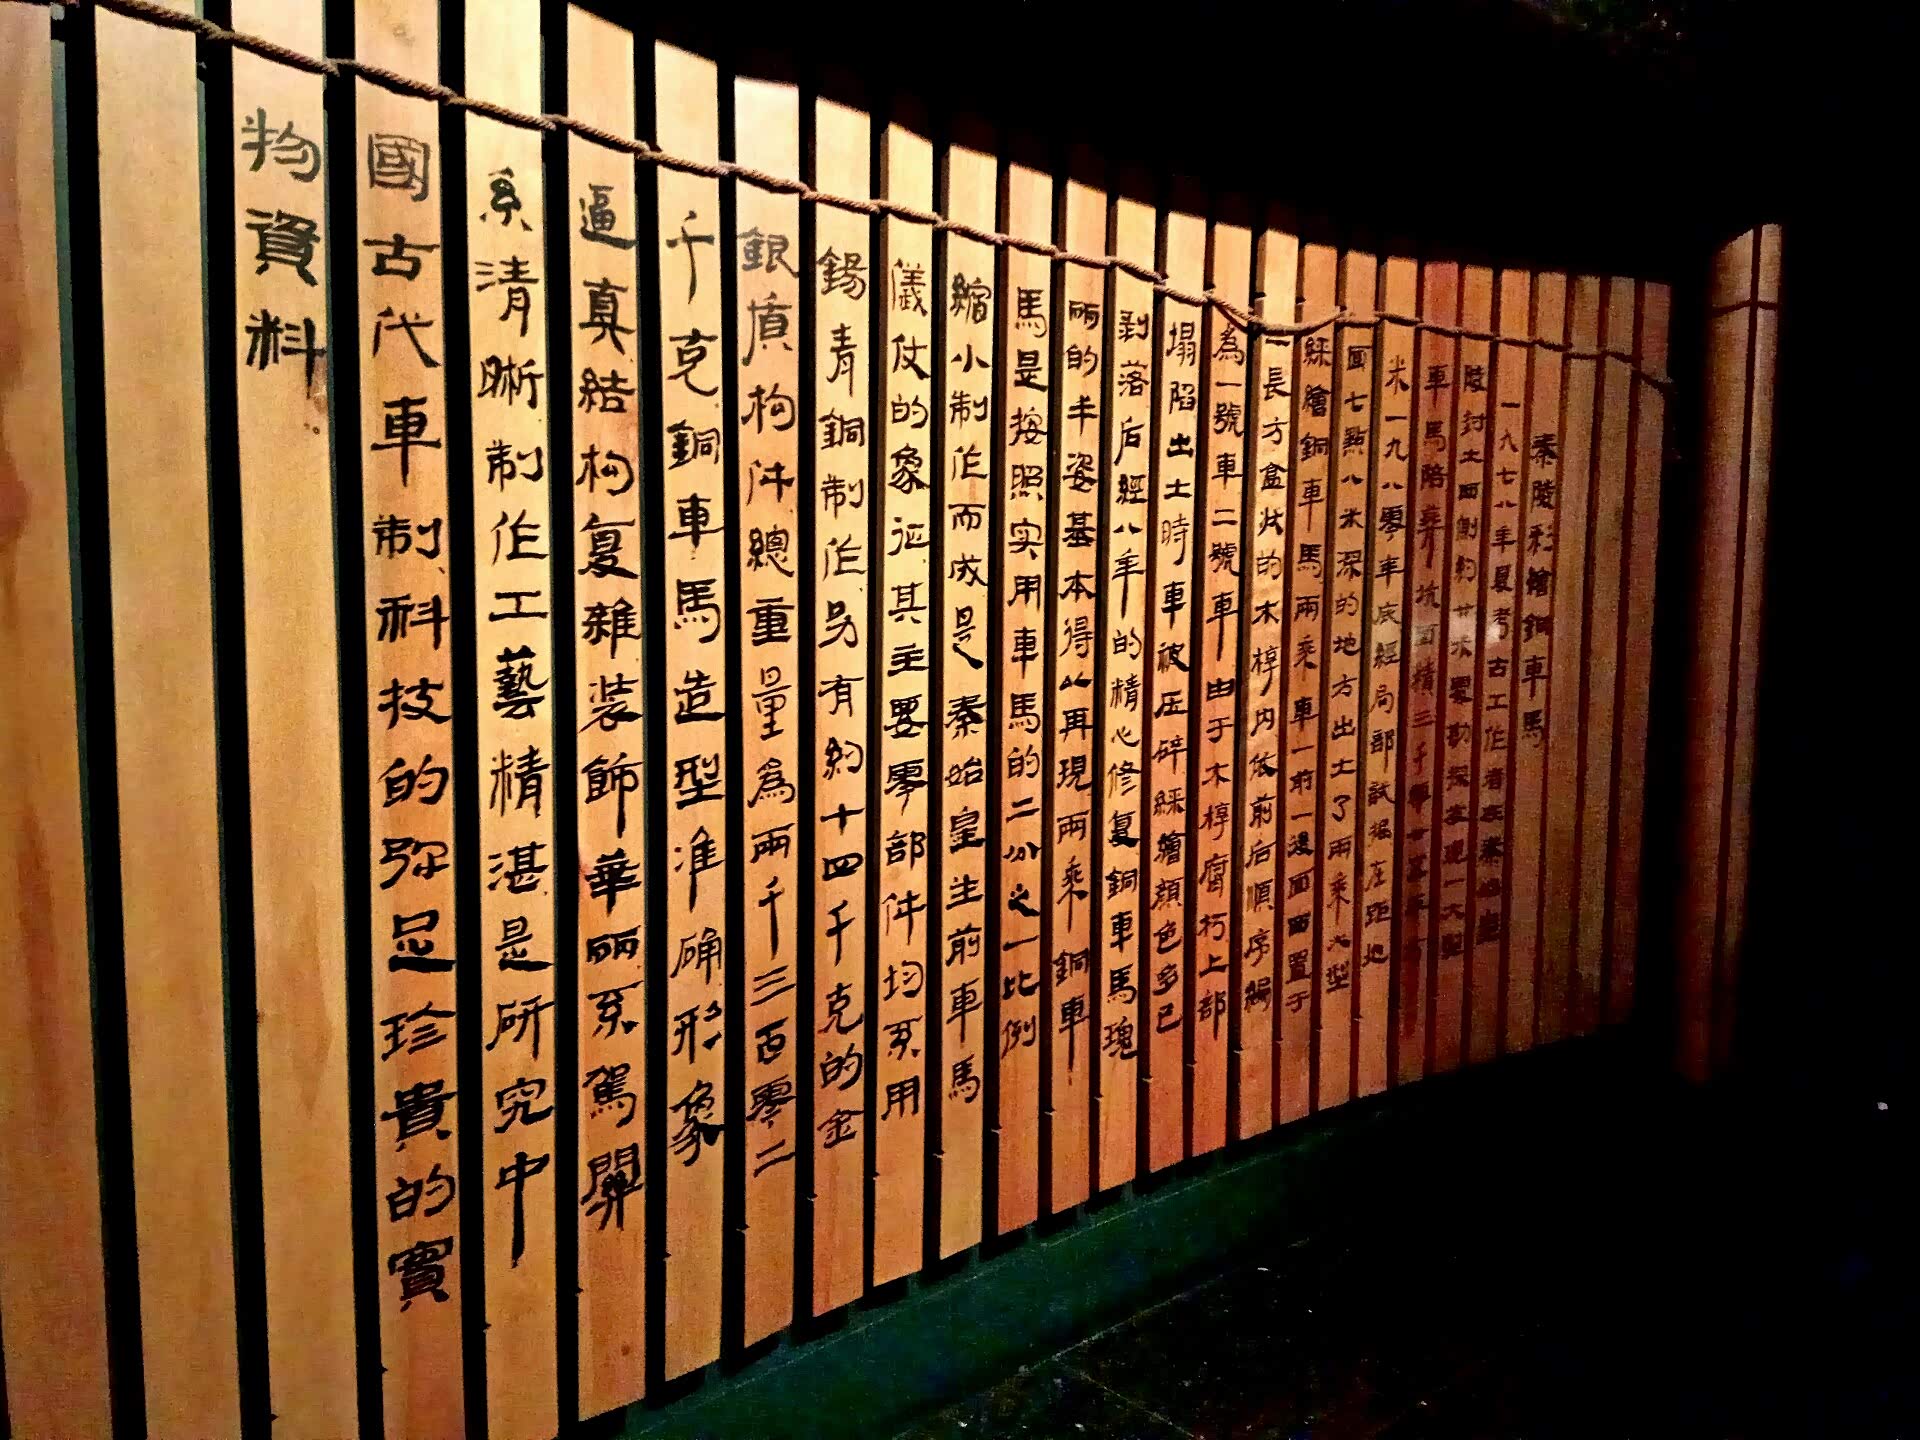 秦陵彩繪銅車馬
一九七八年夏考古工作者在秦始皇
陵封土西側約廿米處勘探發現一大型
車馬陪葬坑面積三千
米一九八零年底經局部試掘在距地
面七點八米深的地方出土了兩乘大型
綵繪銅車馬兩乘車一前一後面西置于
一長方盒狀的木椁内依前后順序編
為一號車二號車由于木椁腐朽上部
塌陷出土時車被压碎綵繪顏色多已
剥落后經八年的精心修复銅車馬瑰
丽的丰姿基本得以再現兩乘銅車
馬是按照实用車馬的二分之一比例
縮小制作而成是秦始皇生前車馬
儀仗的象征其主要零部件均系用
錫青銅制作另有約十四千克的金
銀質构件總重量為兩千三百零二
千克銅車馬造型准确形象
逼真結构复雜装飾華丽系駕關
系清晰制作工藝精湛是研究中
國古代車制科技的弥足珍貴的實
物資料